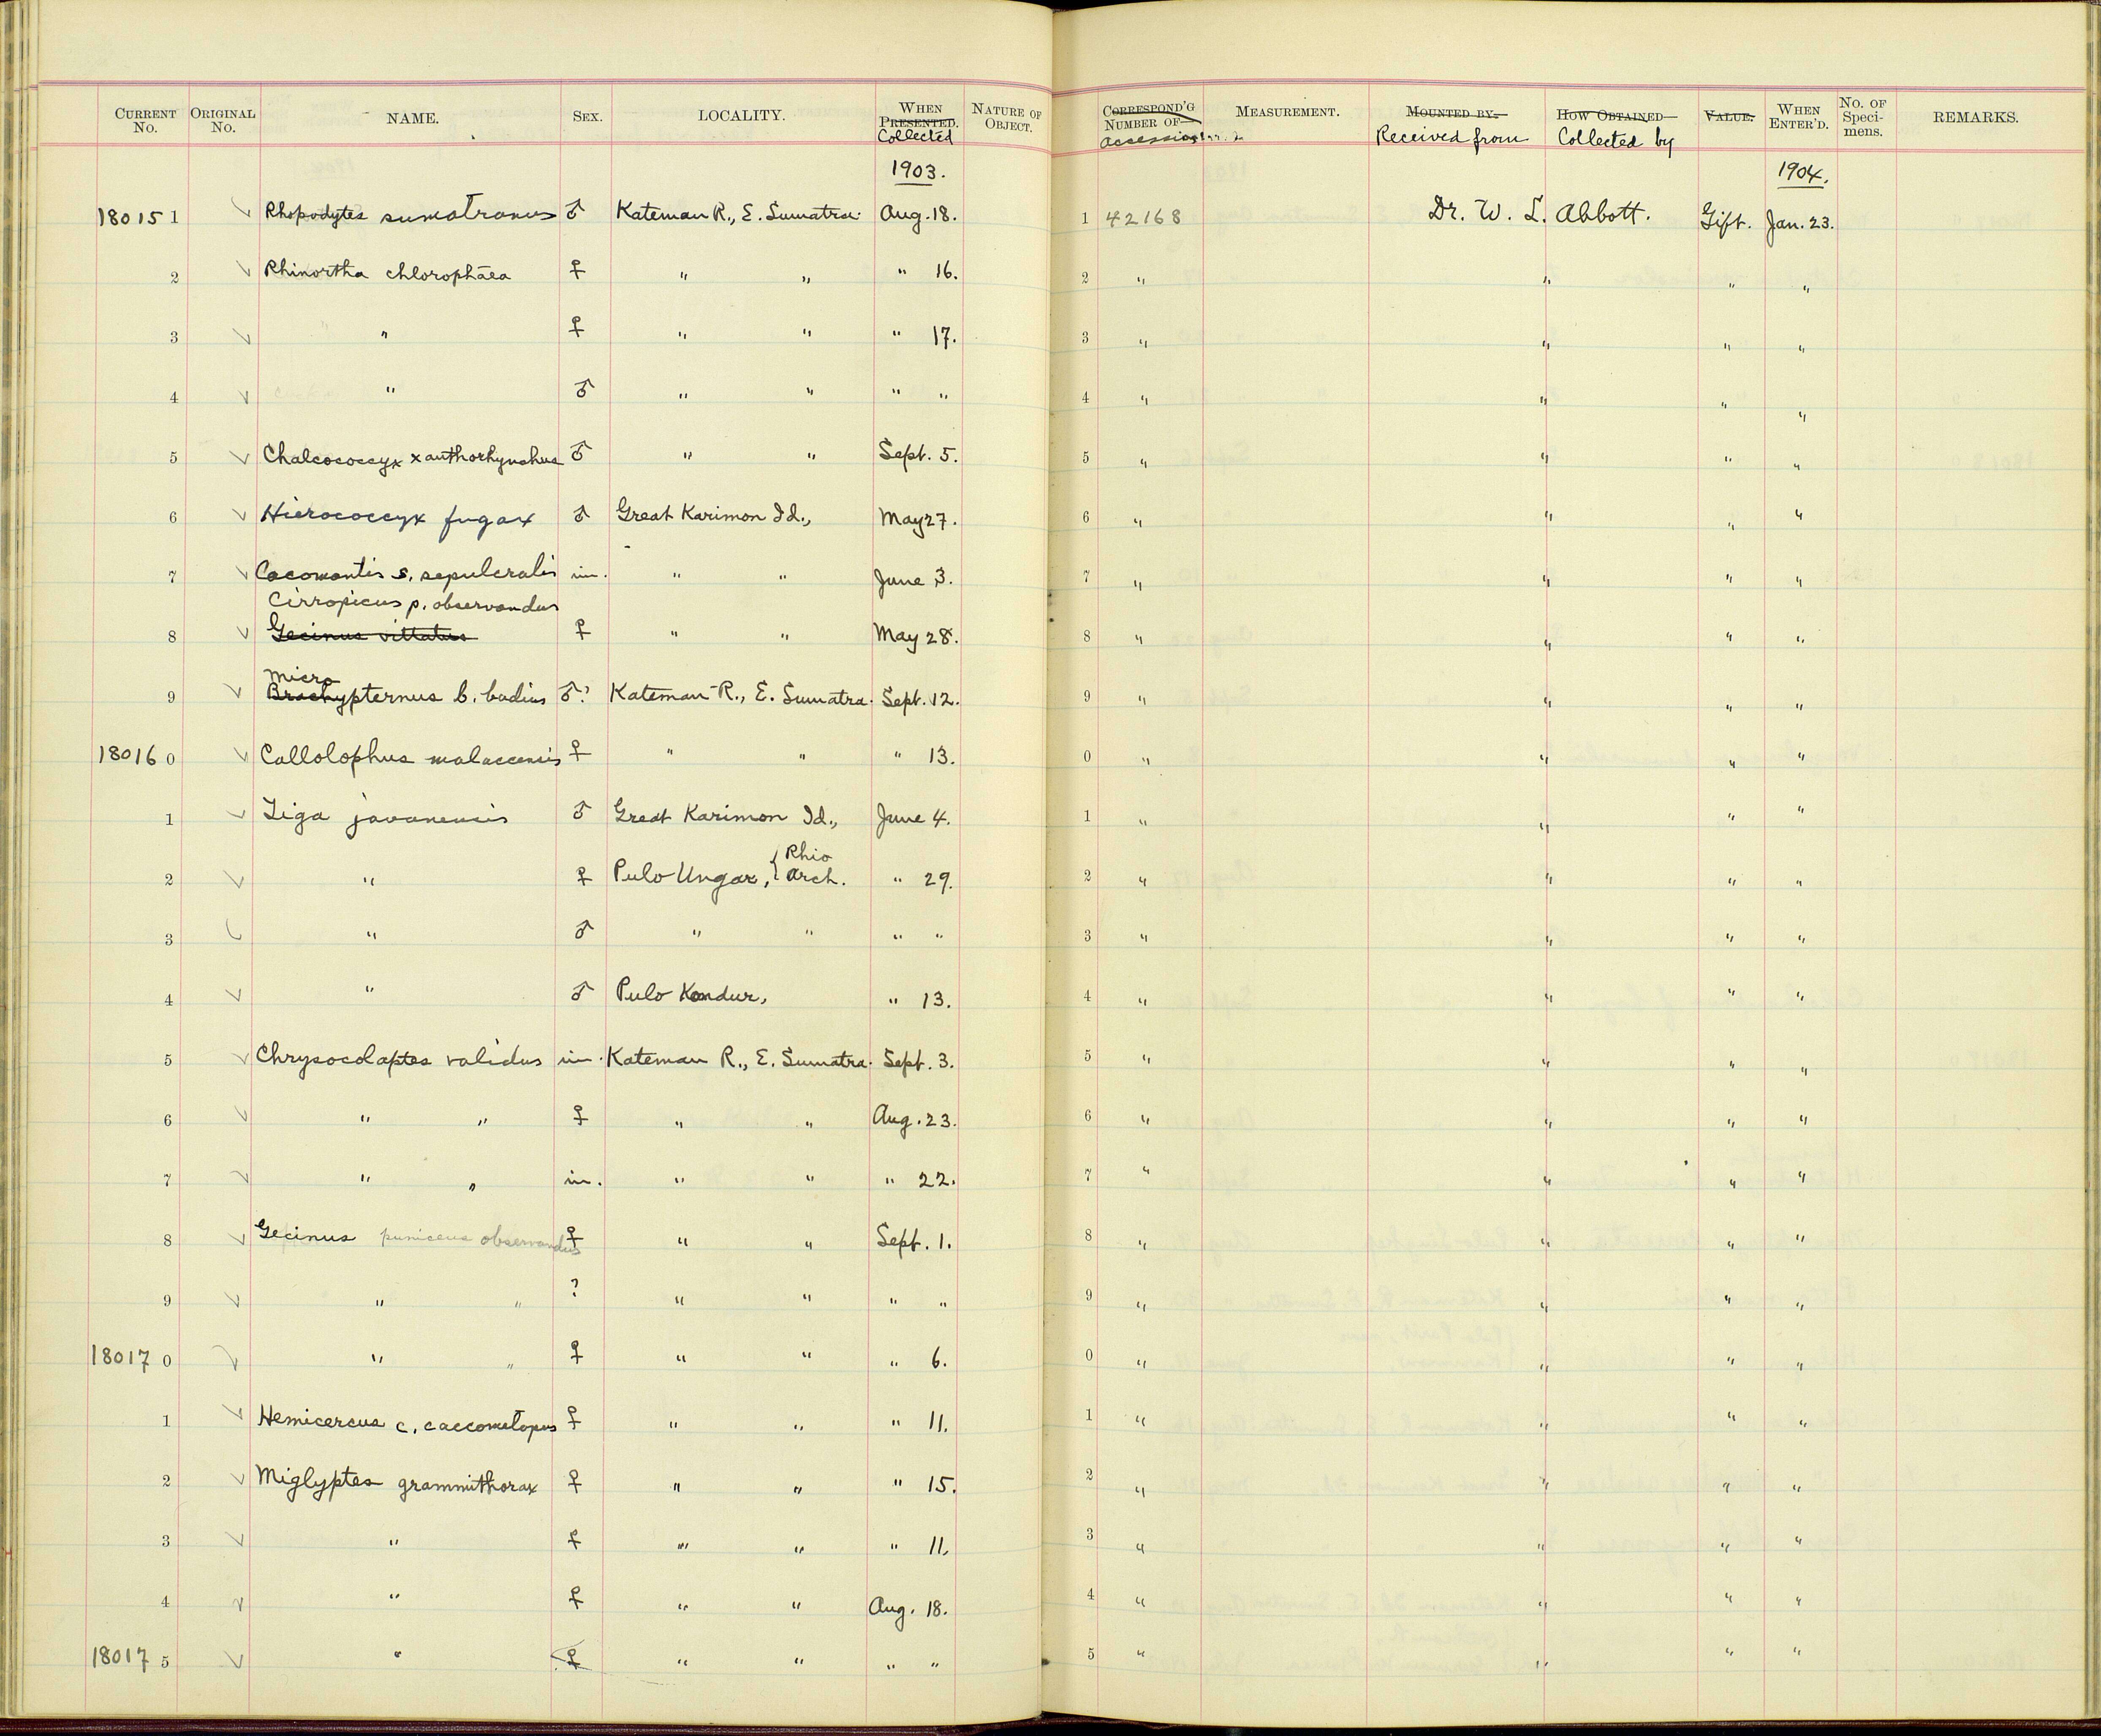 CURRENT No. ORIGINAL No. NAME. SEX. LOCALITY. WHEN PRESENTED. Collected NATURE OF OBJECT. CORRESPOND'G NUMBER OF MEASUREMENT. MOUNTED BY Received from HOW OBTAINED Collected by VALUE. WHEN ENTER'D. No. OF Speci-mens. REMARKS.
1903. 1904.
18015 1 Rhopodytes sumatranus ♂ Kateman R., E. Sumatra. Aug. 18. 1 42168 Dr. W. L. Abbott. Gift. Jan. 23.
2 Rhinortha chlorophaea ♀ " " " 16. 2 " " " "
3 " ♀ " " " 17. 3 " " " "
4 " ♂ " " " " 4 " " " "
5 Chalcococcyx xanthorhynchus ♂ " " Sept. 5. 5 " " " "
6 Hierococcyx fugax ♂ Great Karimon Id., May 27. 6 " " " "
7 Cacomantis s. sepulcralis im. " " June 3. 7 " " " "
Cirropicus p. observandus
8 Gecinus vittatus ♀ " " May 28. 8 " " " "
Micro
9 Brachypternus b. badius ♂? Kateman R., E. Sumatra. Sept. 12. 9 " " " "
18016 0 Callolophus malaccensis ♀ " " " 13. 0 " " " "
1 Tiga javanensis ♂ Great Karimon Id., June 4. 1 " " " "
2 " ♀ Pulo Ungar, { Rhio Arch. " 29. 2 " " " "
3 " ♂ " " " " 3 " " " "
4 " ♂ Pulo Kondur, " 13. 4 " " " "
5 Chrysocolaptes validus im. Kateman R., E. Sumatra. Sept. 3. 5 " " " "
6 " " ♀ " " Aug. 23. 6 " " " "
7 " " im. " " " 22. 7 " " " "
8 Gecinus puniceus observandus ♀ " " Sept. 1. 8 " " " "
9 " " ? " " " " 9 " " " "
18017 0 " " ♀ " " " 6. 0 " " " "
1 Hemicercus c. coccometopus ♀ " " " 11. 1 " " " "
2 Miglyptes grammithorax ♀ " " " 15. 2 " " " "
3 " ♀ " " " 11. 3 " " " "
4 " ♀ " " Aug. 18. 4 " " " "
18017 5 " ♀ " " " " 5 " " " "